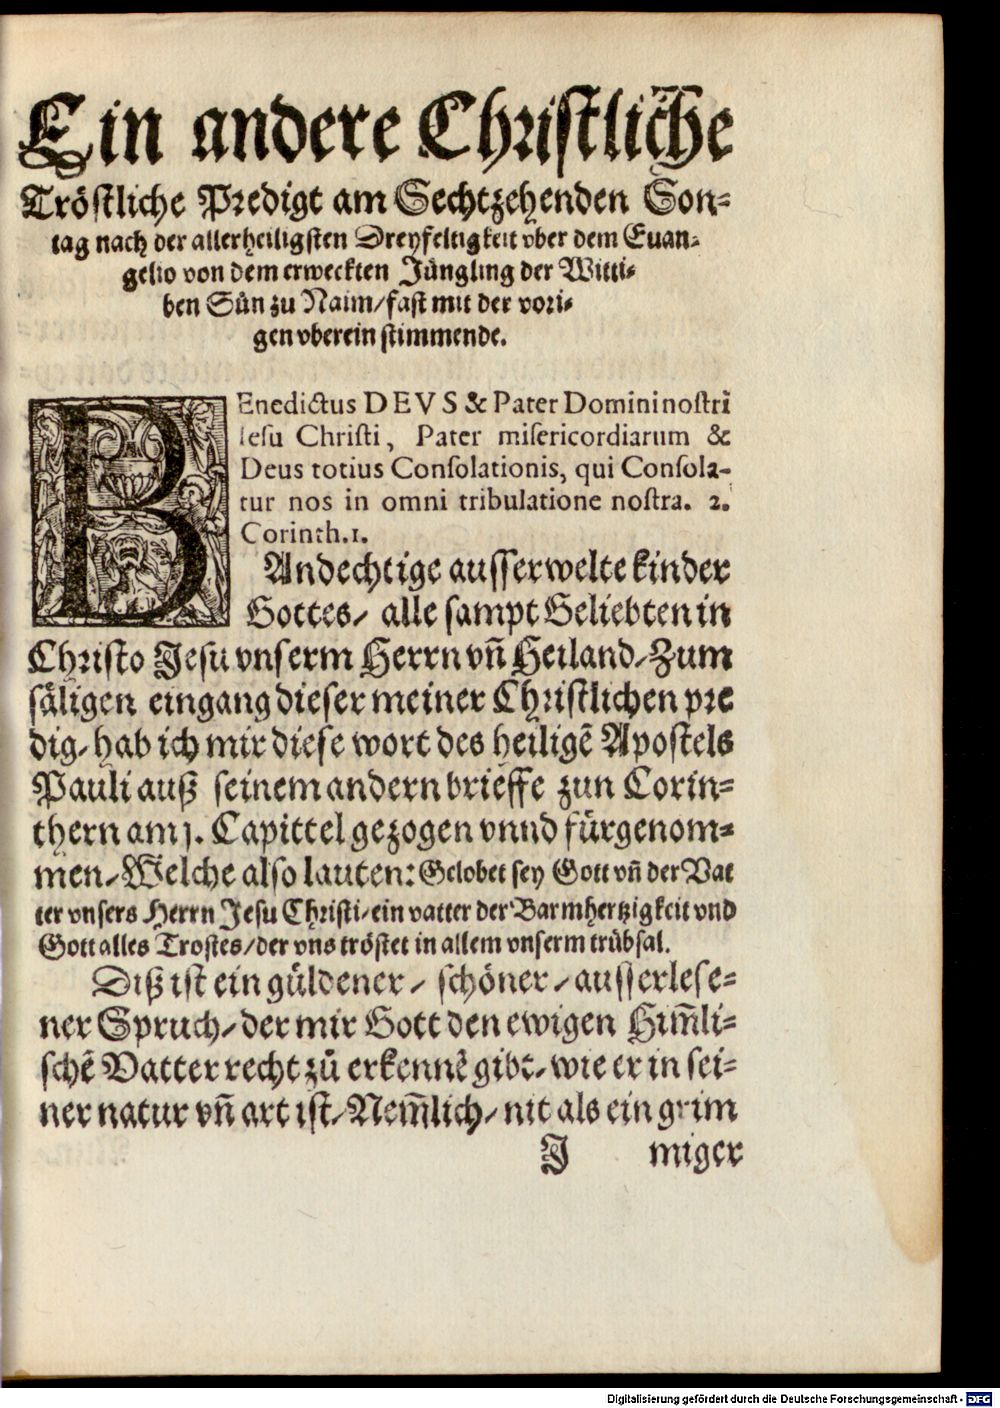 Ein andere Christliche
Tröstliche Predigt am Sechtzehenden Son-
tag nach der allerheiligsten Dreyfeltigkeit vber dem Euan-
gelio von dem erweckten Jüngling der Witti-
ben Sün zu Naim/fast mit der vori-
gen vberein stimmende.
BEnedictus DEVS & Pater Domini nostri
Iesu Christi, Pater misericordiarum &
Deus totius Consolationis, qui Consola-
tur nos in omni tribulatione nostra. 2.
Corinth.1.
Andechtige ausserwelte kinder
Gottes/ alle sampt Geliebten in
Christo Jesu vnserm Herrn vñ Heiland/Zum
säligen eingang dieser meiner Christlichen pre
dig/hab ich mir diese wort des heiligẽ Apostels
Pauli auß seinem andern brieffe zun Corin-
thern am j. Capittel gezogen vnnd fürgenom-
men/Welche also lauten: Gelobet sey Gott vñ der Vat
ter vnsers Herrn Jesu Christi/ein vatter der Barmhertzigkeit vnd
Gott alles Trostes/der vns tröstet in allem vnserm trübsal.
Diß ist ein güldener/ schöner/ausserlese-
ner Spruch/der mir Gott den ewigen Him̃li-
schẽ Vatter recht zů erkennẽ gibt/wie er in sei-
ner natur vñ art ist/Nem̃lich/nit als ein grim
J miger
Digitalisierung gefördert durch die Deutsche Forschungsgemeinschaft - DFG